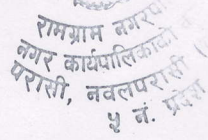 रामग्राम नगरपा
नगर कार्यपालिकाको
परासी, नवलपरासी (
५ नं. प्रदेश